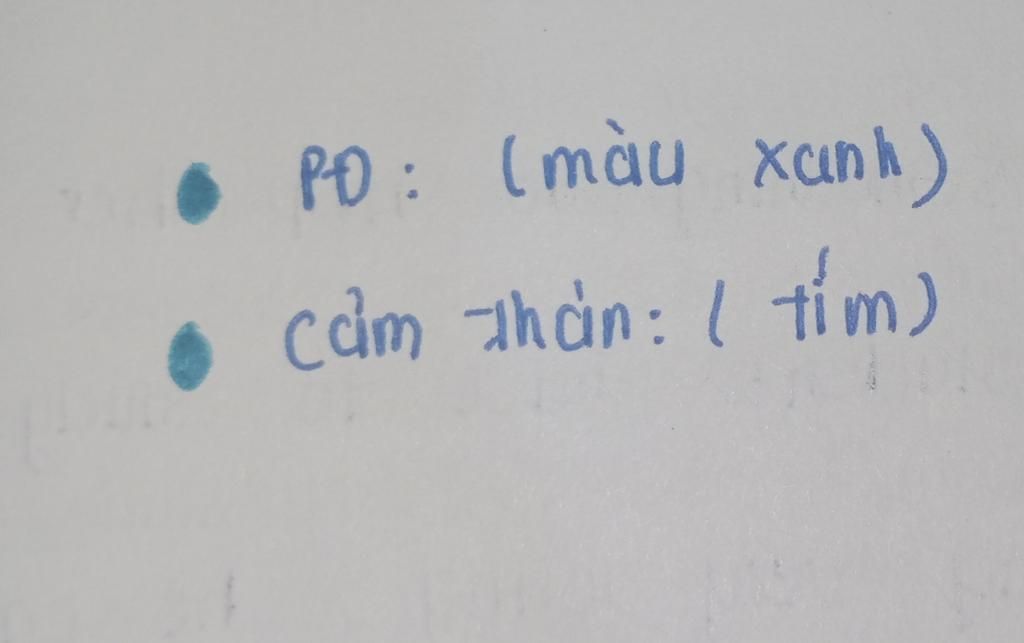 • PĐ: (màu xanh)
• Cảm thán: ( tím)